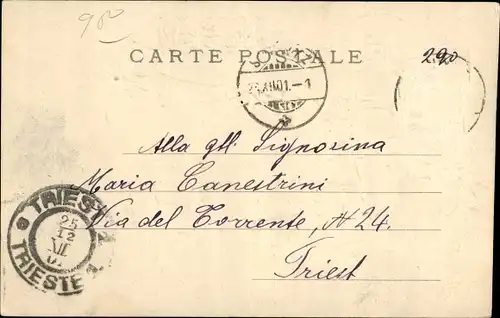 980
CARTE POSTALE
290
XII.01.-1
Alla gtl. Signorina
Maria Canestrini
Via del Torrente, N 24.
Triest
TRIEST
25
12
XII
01
TRIESTE